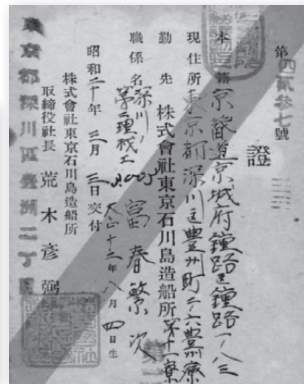 第四貳参七號
證
本籍 京畿道京城府鐘路區鐘路一ノ八三
現住所 東京都深川區豊洲町二ノ六豊洲寮
勤先 株式會社東京石川島造船所 第十一寮
職係名 深川 第二機工
富春繁次
大正十三年八月四日生
昭和二十年三月三日交付
株式會社東京石川島造船所
取締役社長 荒木彦弼
東京都深川區豊洲二丁